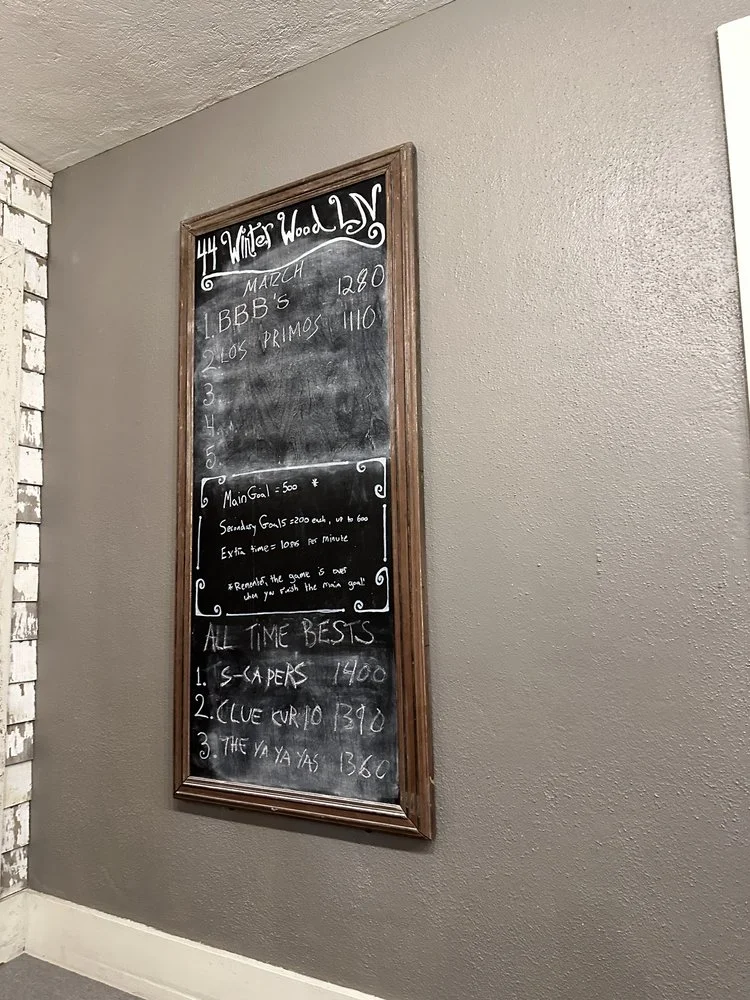 44 Winter Wood LN
MARCH
1. BBB'S 1280
2. LOS PRIMOS 1110
3.
4.
5.
Main Goal = 500 *
Secondary Goals = 200 each, up to 600
Extra time = 10pts per minute
*Remember, the game is over
when you finish the main goal!
ALL TIME BESTS
1. S-CAPERS 1400
2. CLUE CUR10 1390
3. THE YA YA YAS 1360